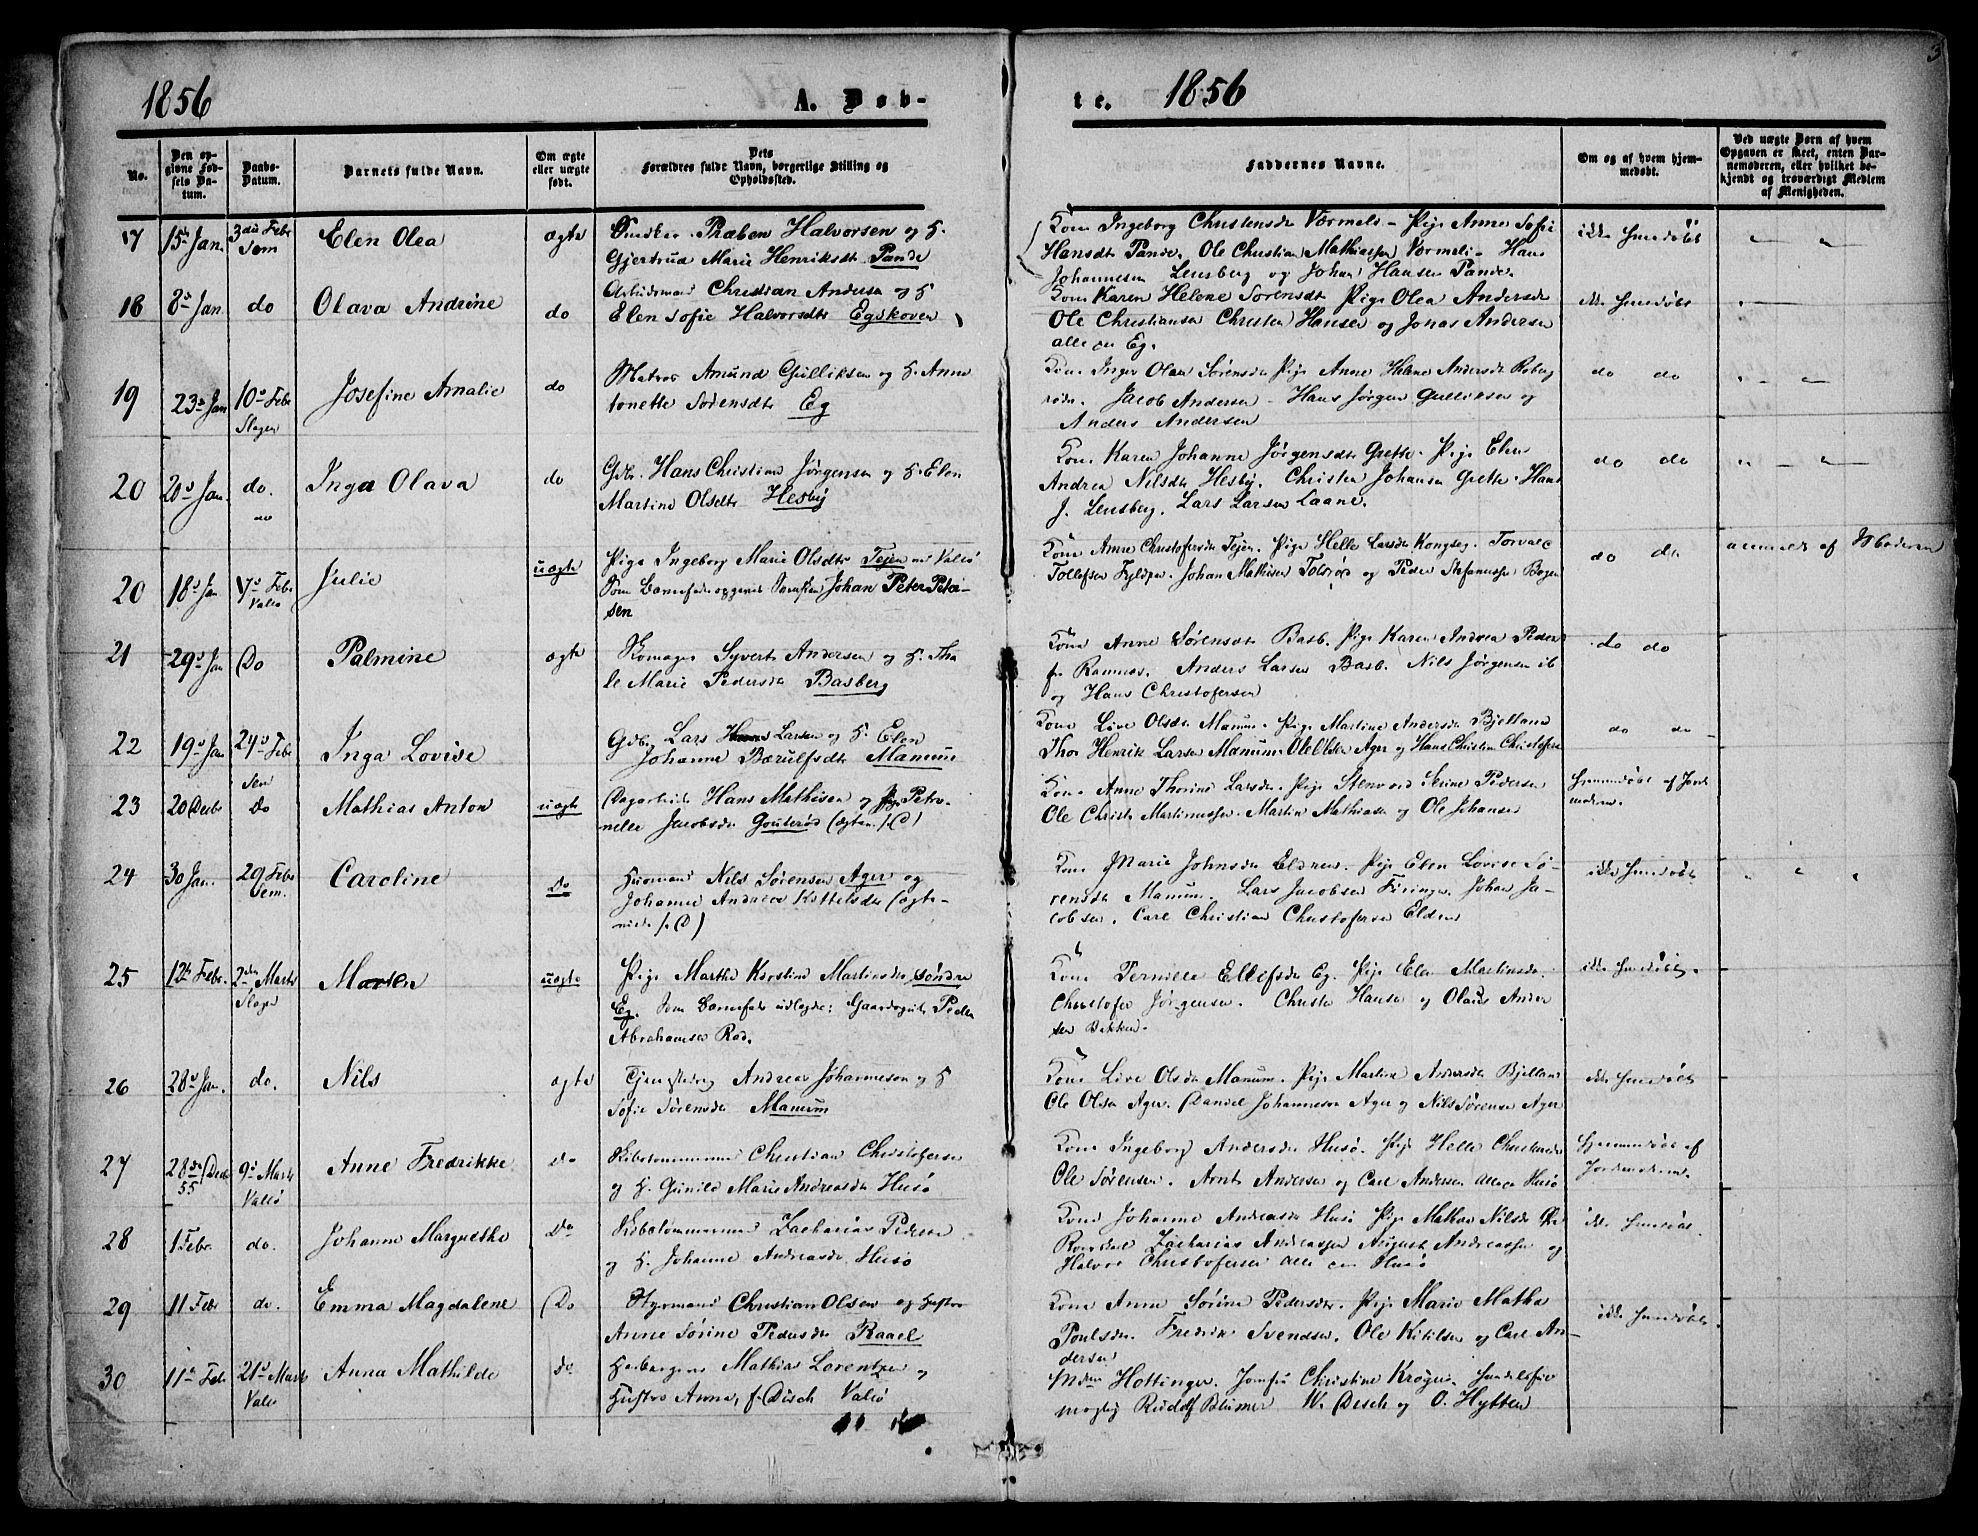 3
1856
A. Døb-
te. 1856
No.
Den op-
givne Fød-
sels Da-
tum.
Daabs-
Datum.
Barnets fulde Navn.
Om ægte
eller uægte
født.
Dets
Forældres fulde Navn, borgerlige Stilling og
Opholdssted.
Faddernes Navne.
Om og af hvem hjem-
medøbt.
Ved uægte Børn af hvem
Opgaven er skeet, enten Bar-
nemoderen, eller hvilket be-
kjendt og troværdigt Medlem
af Menigheden.
17 15 Jan. 3die Febr
Sem
Elen Olea
ægte
Præben Halvorsen og H.
Gjertrud Marie Henriksdt Pande
Kone Ingeborg Christensdt Vermeli - Pige Anne Sofie
Hansdt Pande. Ole Christian Mathiassen Vermeli - Hans
Johannesen Lensberg og Johan Hansen Pande.
ikke hmedøbt
18 8 Jan. do Olava Andrine do
Christian Andersen og H
Elen Sofie Halvorsdtr Egskoven
Kone Karen Helene Sørensdt Pige Olea Andersdt
Ole Christiansen Christen Hansen og Jonas Andersen
alle paa Eg.
ikke hmedøbt
19 23 Jan 10 Febr
Slagen
Josefine Amalie do
Matros Amund Gulliksen og H. Anne
tonette Sørensdtr Eg
Kone Inger Olea Sørensdt Pige Anne Helene Andersdt
Jacob Andersen - Hans Jørgen Gulliksen og
Anders Andersen
do do
20 20 Jan. do.
do
Inga Olava do
Gdb. Hans Christian Jørgensen og H. Elen
Martine Olsdtr Hesby
Kone Karen Johanne Jørgensdt Grette. Pige Elen
Andrea Nilsdt Hesby. Christen Johansen Grette. Hans
J. Lensberg. Lars Larsen Laane.
do do
20 18 Jan 17 Febr
Valø
Julie uægte
Pige Ingeborg Marie Olsdtr Tejen ved Valø
Som Barnefader opgives Johan Peter Peter-
sen
Kone Anne Christofersdt Tejen. Pige Helle Larsdt Kongseg. Torvald
Tollefsen. Johan Mathisen Tolsrød og Peder Stefanussen Bogen
do do
anmeldt af Moderen
21 29 Jan Do Palmine ægte
Syvert Andersen og H. Tha
le Marie Pedersdt Basberg
Kone Anne Sørensdt Basb. Pige Karen Andrea Peder
f. Ramnæs. Anders Larsen Basb. Nils Jørgensen ib
og Hans Christofersen
do do
22 19 Jan 24 Febr
Sem
Inga Lovise
Gdbr. Lars Larsen og H. Elen
Johanne Bærulfsdt Manum
Kone Live Olsdt Manum. Pige Martine Andersdt Bjelland
Thor Henrik Larsen Manum Ole Olsen Ager og Hans Christian Christofersen
do do
23 20 Decbr Do Mathias Anton uægte
Dagarbeider Hans Mathisen og Petro-
nelle Jacobsdt Gouterød
Kone Anne Thorine Larsdt. Pige Serine Pedersen
Ole Christn Martinussen. Martin Mathiasen og Ole Johansen
Hjemmedøbt af Jord
moderen.
24 30 Jan. 29 Febr
Sem.
Caroline Do
Huusmand Nils Sørensen Ager og
Johanne Andrea Kittelsdtr
Kone Marie Johnsdt Eldren. Pige Elen Lovise Sø-
rensdt Manum. Lars Jacobsen Føringen. Johan Ja-
cobsen. Carl Christian Christofersen Eldren
ikke hmedøbt
25 12 Febr. 2den Marts
Slagen
Marten uægte
Pige Marthe Kirstine Martinsdtr søndre
Eg. Som Barnefader udlagdes: Gaardsgut Peder
Abrahamsen Rød.
Kone Pernille Ellefsdt Eg. Pige Elen Martinsdt.
Christofer Jørgensen. Christen Hansen og Olaus Ander
sen Bakken.
ikke hmedøbt.
26 28 Jan. do. Nils ægte
Andreas Johannesen og H
Sofie Sørensdt Manum
Kone Live Olsdt Manum. Pige Martine Andersdt Bjelland
Ole Olsen Ager. Daniel Johannesen Ager og Nils Sørensen Ager
ikke hmedøbt
27 28de Decbr
55
9 Marts
Valø
Anne Fredrikke do
Skibstømmermand Christian Christofersen
og H. Gunild Marie Andreasdt Husø
Kone Ingeborg Andersdt Husø. Pige Helle Christensdtr
Ole Sørensen. Arnt Andersen og Carl Andersen alle paa Husø
Hjemmedøbt af
Jordmoderen.
28 1 Febr. do. Johanne Margrethe Do
Skibstømmermand Zacharias Pedersen
og H. Johanne Andreasdt Husø
Kone Johanne Andreasdt Husø Pige Mathea Nilsdt
Zacharias Andreassen August Andreassen og
Halvor Christofersen alle paa Husø
ikke hmedøbt.
29 11 Febr do. Emma Magdalene Do
Styrmand Christian Olsen og Hustro
Anne Sørine Pedersdt Raael
Kone Anne Sørine Pedersdtr. Pige Marie Mathea
Poulsdtr. Fredrik Svendsen. Ole Kittilsen og Carl An-
dersen
ikke hmedøbt.
30 11te Febr 21 Marts
Valø
Anna Mathilde do
Mathias Lorentzen og
Hustro Anna, f. Disch Valø
Mdm Hottinger. Jomfru Christine Krøger. Handelsfuld-
mægtig Rudolf Blumer W. Disch og O. Hytten